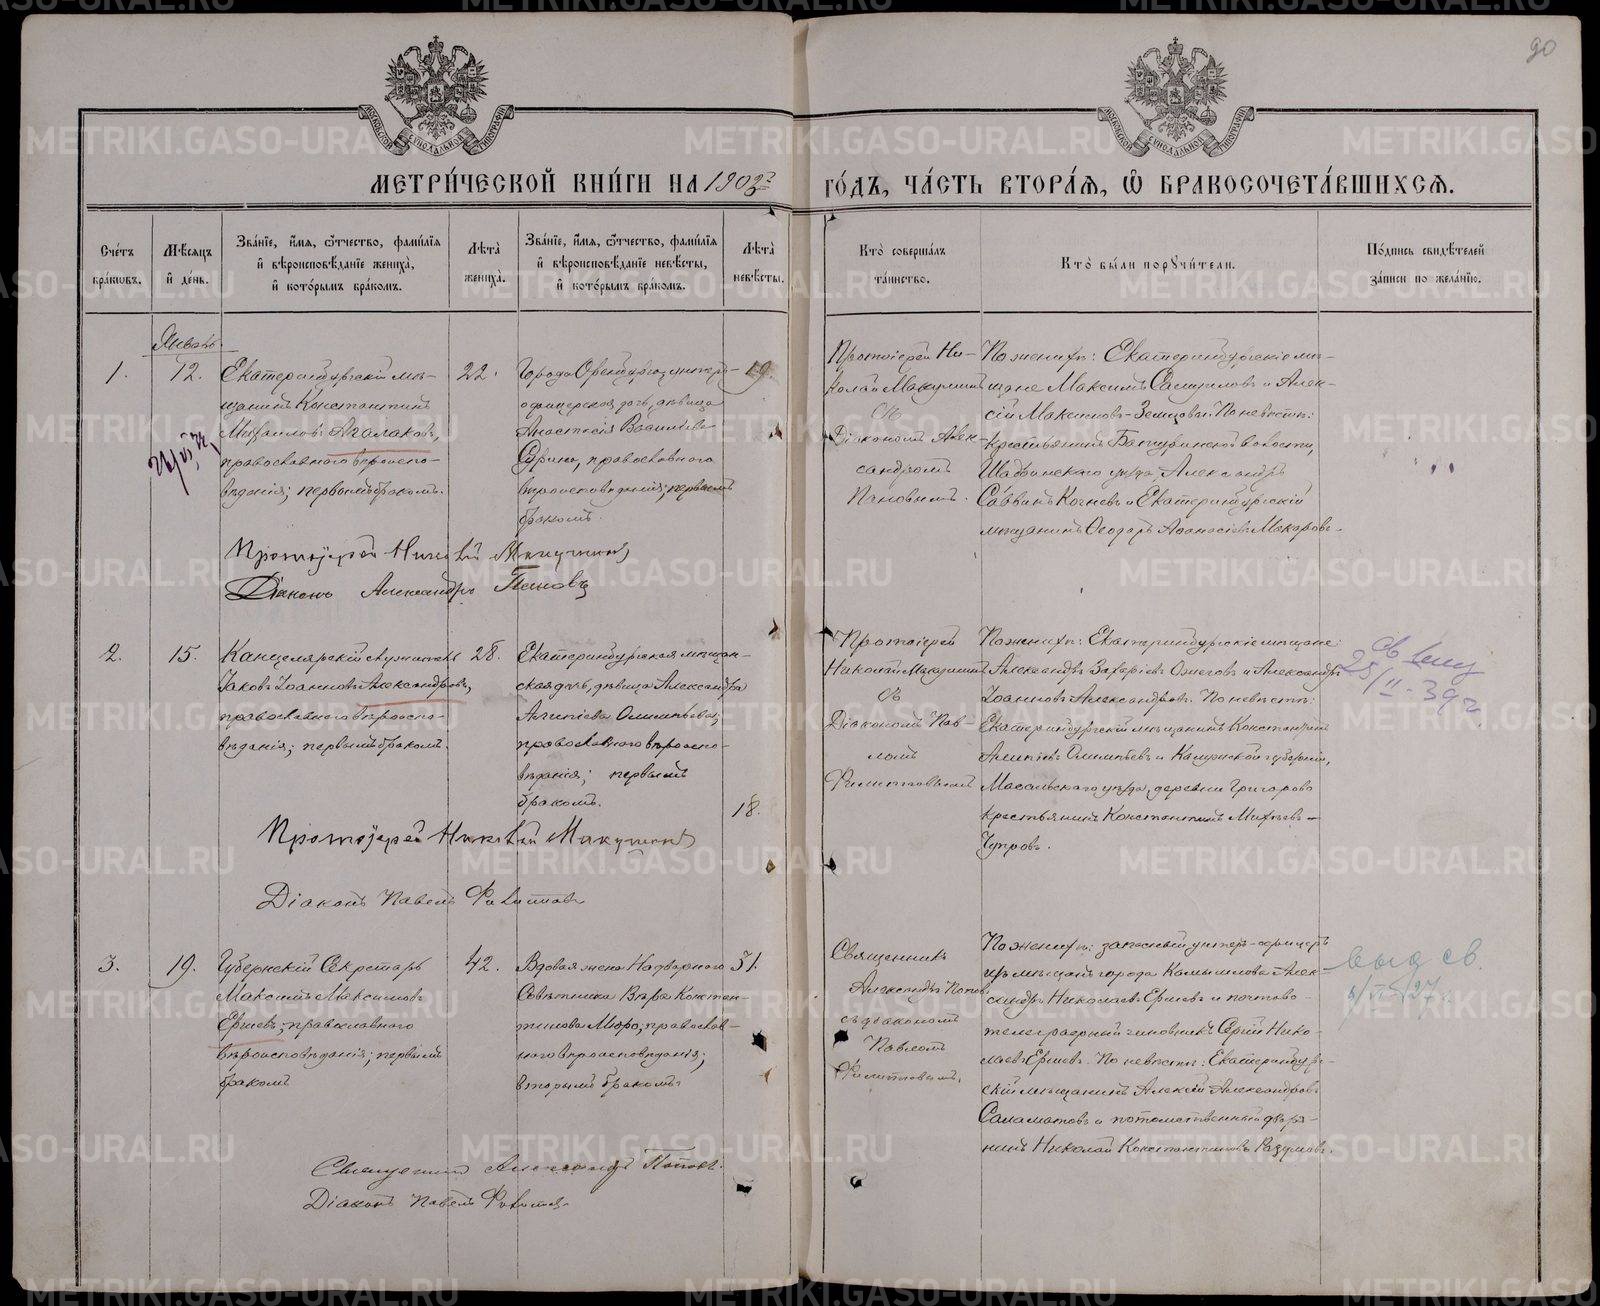 90
МОСКОВСКОЙ СУНОДАЛЬНОЙ ТИПОГРАФІИ
МОСКОВСКОЙ СУНОДАЛЬНОЙ ТИПОГРАФІИ
МЕТРИ́ЧЕСКОЙ КНИ́ГИ НА
ГО́ДЪ, ЧА́СТЬ ВТОРА́Я, Ѽ БРАКОСОЧЕТА́ВШИХСЯ.
Сче́тъ
бра́ковъ.
Мѣ́сяцъ
и҆ де́нь.
Зва́нїе, и҆́мя, ѻ҆́тчество, фами́лїя
и҆ вѣроисповѣ́данїе жениха̀,
и҆ кото́рымъ бра́комъ.
Лѣта̀
жениха̀.
Зва́нїе, и҆́мя, ѻ҆́тчество, фами́лїя
и҆ вѣроисповѣ́данїе невѣ́сты,
и҆ кото́рымъ бра́комъ.
Лѣта̀
невѣ́сты.
Кто̀ соверша́лъ
та́инство.
Кто̀ бы́ли порꙋчи́тели.
По́дпись свидѣ́телей
за́писи по жела́нїю.
Январь
1.
12.
Екатеринбургскій мѣ-
щанинъ Константинъ
Михаиловъ Агалаковъ,
православнаго вѣроиспо-
вѣданія; первымъ бракомъ.
22.
Города Оренбурга, унтеръ-
офицерская дочь, дѣвица
Анастасія Васильева
православнаго
вѣроисповѣданія; первымъ
бракомъ.
19.
Протоіерей Ни-
колай Макушинъ
съ
Діакономъ Алек-
сандромъ
Пановымъ.
По женихѣ: Екатеринбургскіе мѣ-
щане Максимъ Самуиловъ и Алек-
сій Максимовъ Земцовы. По невѣстѣ:
крестьянинъ Батуринской волости,
Шадринскаго уѣзда, Александръ
Саввинъ Кочневъ и Екатеринбургскій
мѣщанинъ Ѳеодоръ Аѳанасіевъ Макаровъ.
Протоіерей Николай Макушинъ
Діаконъ Александръ Пановъ
2.
15.
Канцелярскій служитель
Іаковъ Іоанновъ Александровъ,
православнаго вѣроиспо-
вѣданія; первымъ бракомъ.
28.
Екатеринбургская мѣщан-
ская дочь, дѣвица Александра
Агипіева Олимпьева,
православнаго вѣроиспо-
вѣданія; первымъ
бракомъ.
18.
Протоіерей
Николай Макушинъ
съ
Діакономъ Пав-
ломъ
Филипповымъ
По женихѣ: Екатеринбургскіе мѣщане:
Александръ Захаріевъ Ожеговъ и Александръ
Іоанновъ Александровъ. По невѣстѣ:
Екатеринбургскій мѣщанинъ Константинъ
Олимпьевъ и Калужской губерніи,
Масальскаго уѣзда, деревни Григорово
крестьянинъ Константинъ Михѣевъ
Чупровъ.
25/II-39 г.
Протоіерей Николай Макушинъ
Діаконъ Павелъ Филипповъ
3.
19.
Губернскій Секретарь
Максимъ Максимовъ
Ершовъ; православнаго
вѣроисповѣданія; первымъ
бракомъ
42.
Вдовая жена Надворнаго
Совѣтника Вѣра Констан-
тинова Мюро; православ-
наго вѣроисповѣданія;
вторымъ бракомъ.
31.
Священникъ
Александръ Поповъ
съ діакономъ
Павломъ
Филипповымъ.
По женихѣ: запасный унтеръ-офицеръ
изъ мѣщанъ города Камышлова Алек-
сандръ Николаевъ Ершовъ и почтово-
телеграфный чиновникъ Сергій Нико-
лаевъ Ершовъ. По невѣстѣ: Екатеринбург-
скій мѣщанинъ Алексій Александровъ
Саламатовъ и потомственный дворя-
нинъ Николай Константиновъ
выд св.
Священникъ Александръ Поповъ.
Діаконъ Павелъ Филипповъ
METRIKI.GASO-URAL.RU